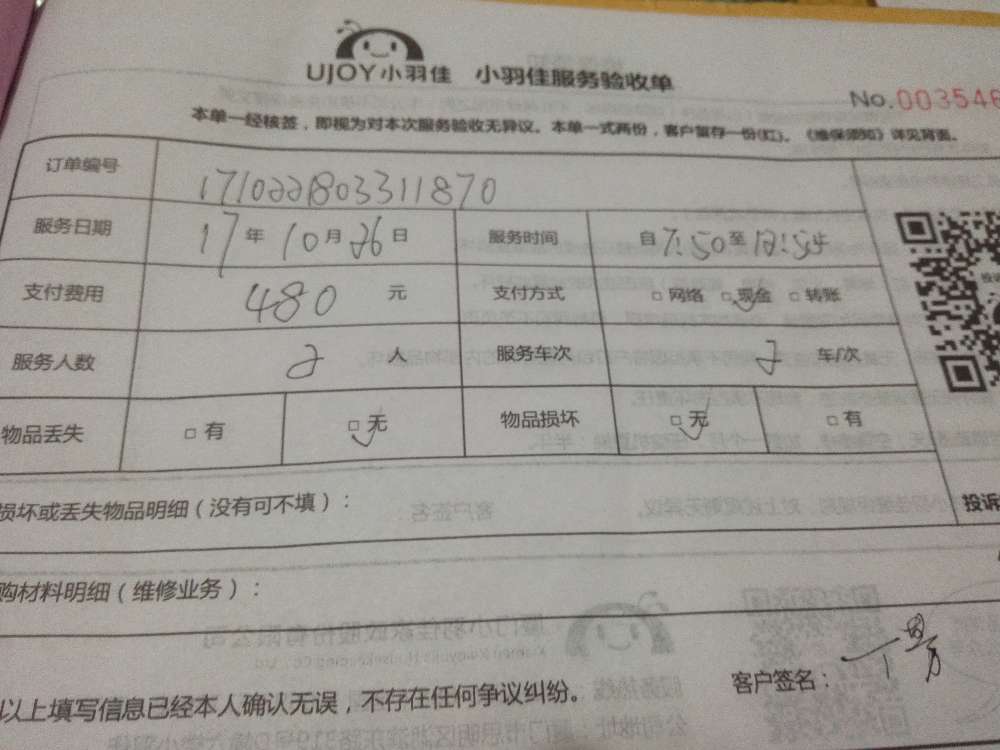 UJOY小羽佳 小羽佳服务验收单
No.003546
本单一经核签，即视为对本次服务验收无异议。本单一式两份，客户留存一份(红)。《维保须知》详见背面。
订单编号 1710221803311870
服务日期 17年10月26日 服务时间 自7:50至12:54
支付费用 480元 支付方式 □网络 □现金 □转账
服务人数 2人 服务车次 2车/次
物品丢失 □有 □无 物品损坏 □无 □有
损坏或丢失物品明细（没有可不填）：
投诉
购材料明细（维修业务）：
客户签名：
以上填写信息已经本人确认无误，不存在任何争议纠纷。